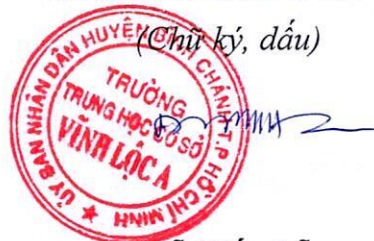 (Chữ ký, dấu)
ỦY BAN NHÂN DÂN HUYỆN BÌNH CHÁNH T.P HỒ CHÍ MINH
TRƯỜNG
TRUNG HỌC CƠ SỞ
VĨNH LỘC A